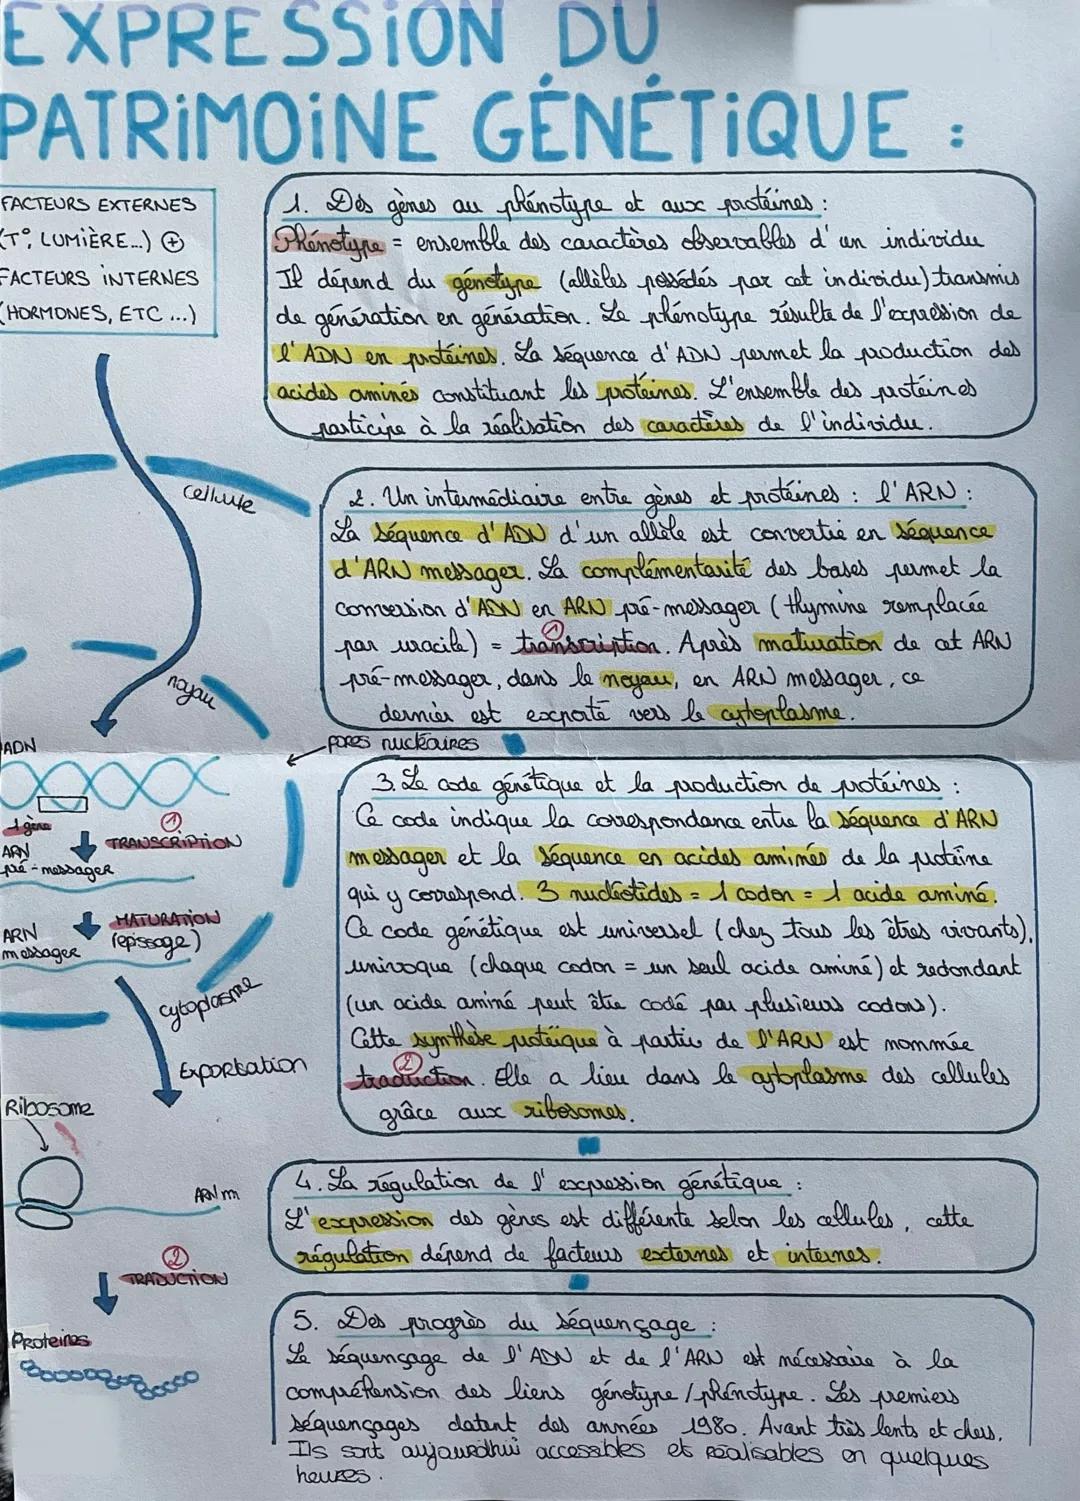 EXPRESSION DU
PATRIMOINE GÉNÉTIQUE :
FACTEURS EXTERNES
(T°, LUMIÈRE...) ⊕
FACTEURS INTERNES
(HORMONES, ETC ...)
1. Des gènes au phénotype et aux protéines :
Phénotype = ensemble des caractères observables d'un individu
Il dépend du génotype (allèles possédés par cet individu) transmis
de génération en génération. Le phénotype résulte de l'expression de
l'ADN en protéines. La séquence d'ADN permet la production des
acides aminés constituant les protéines. L'ensemble des protéines
participe à la réalisation des caractères de l'individu.
cellule
noyau
2. Un intermédiaire entre gènes et protéines : l'ARN :
La séquence d'ADN d'un allèle est convertie en séquence
d'ARN messager. La complémentarité des bases permet la
conversion d'ADN en ARN pré-messager (thymine remplacée
par uracile) = transcription. Après maturation de cet ARN
①
pré-messager, dans le noyau, en ARN messager, ce
dernier est exporté vers le cytoplasme.
pores nucléaires
ADN
1 gène
①
TRANSCRIPTION
ARN
pré-messager
MATURATION
(épissage)
ARN
messager
cytoplasme
Exportation
3. Le code génétique et la production de protéines :
Ce code indique la correspondance entre la séquence d'ARN
messager et la séquence en acides aminés de la protéine
qui y correspond. 3 nucléotides = 1 codon = 1 acide aminé.
Ce code génétique est universel (chez tous les êtres vivants),
univoque (chaque codon = un seul acide aminé) et redondant
(un acide aminé peut être codé par plusieurs codons).
Cette synthèse protéique à partir de l'ARN est nommée
②
traduction. Elle a lieu dans le cytoplasme des cellules
grâce aux ribosomes.
Ribosome
ARN m
②
TRADUCTION
Proteines
4. La régulation de l'expression génétique :
L'expression des gènes est différente selon les cellules, cette
régulation dépend de facteurs externes et internes.
5. Des progrès du séquençage :
Le séquençage de l'ADN et de l'ARN est nécessaire à la
compréhension des liens génotype/phénotype. Les premiers
séquençages datent des années 1980. Avant très lents et chers,
Ils sont aujourd'hui accessables et réalisables en quelques
heures.